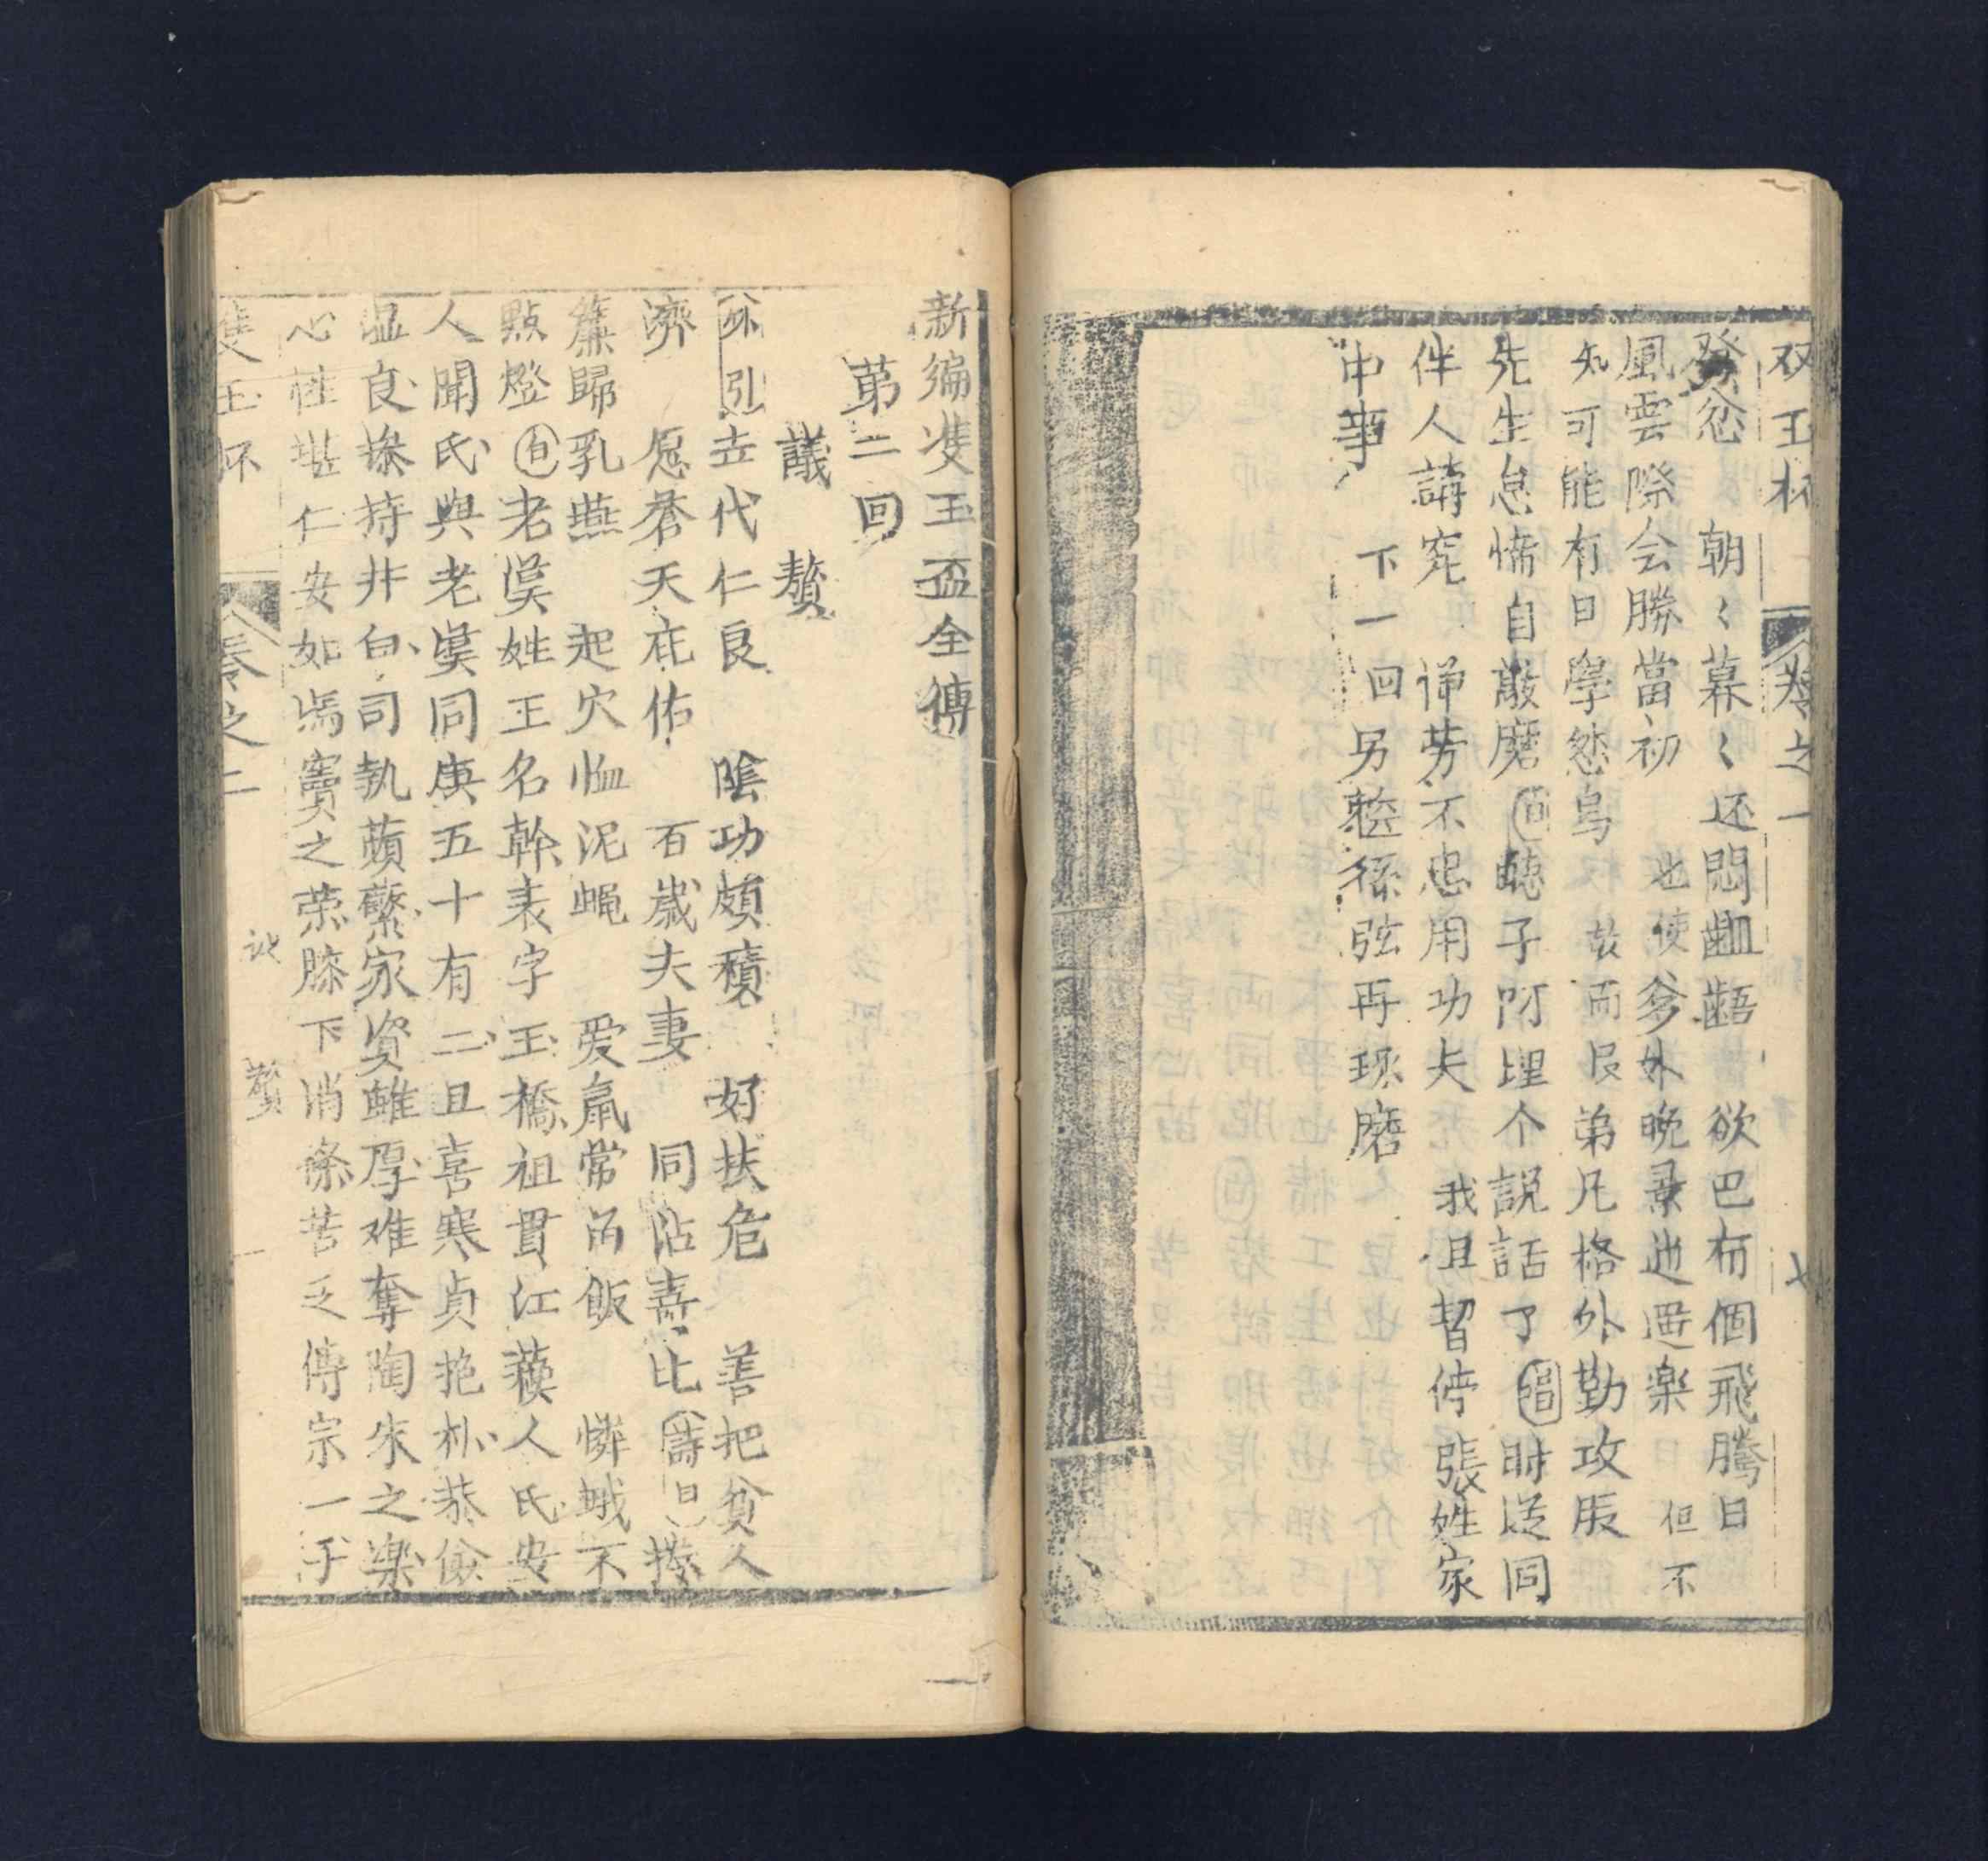 双玉杯 卷之一 七
發忿 朝〻暮〻还悶齟齬 欲巴有個飛騰日
風雲際会勝當初 也使爹外晚景逍遥樂 但不
知可能有日學怹烏 故而長弟凡格外勤攻
先生怠惰自敲磨 白 聴子阿埋个説話了 唱 財送同
伴人講究 悌劳不患用功夫 我且暂停張姓家
中事 下一回另整係弦再琢磨
新编雙玉盃全傳
第二回
議 贅
引 去代仁良 陰功頗積 好扶危 善把貧人
濟 愿蒼天庇佑 百歲夫妻 同沾嘉比 詩曰 捲
簾歸乳燕 起穴恤泥蝇 爱鼠常畄飯 憐蛾不
點燈 白 老漢姓王名幹表字玉橋祖貫江蘓人氏安
人聞氏與老漢同庚五十有二且喜寒貞抱朴恭儉
温良操持井臼司執蘋蘩家資雖厚难奪陶朱之樂
心性堪仁安如馬竇之荣膝下消条苦乏傅宗一子
雙玉杯 卷之二 議 贅 一